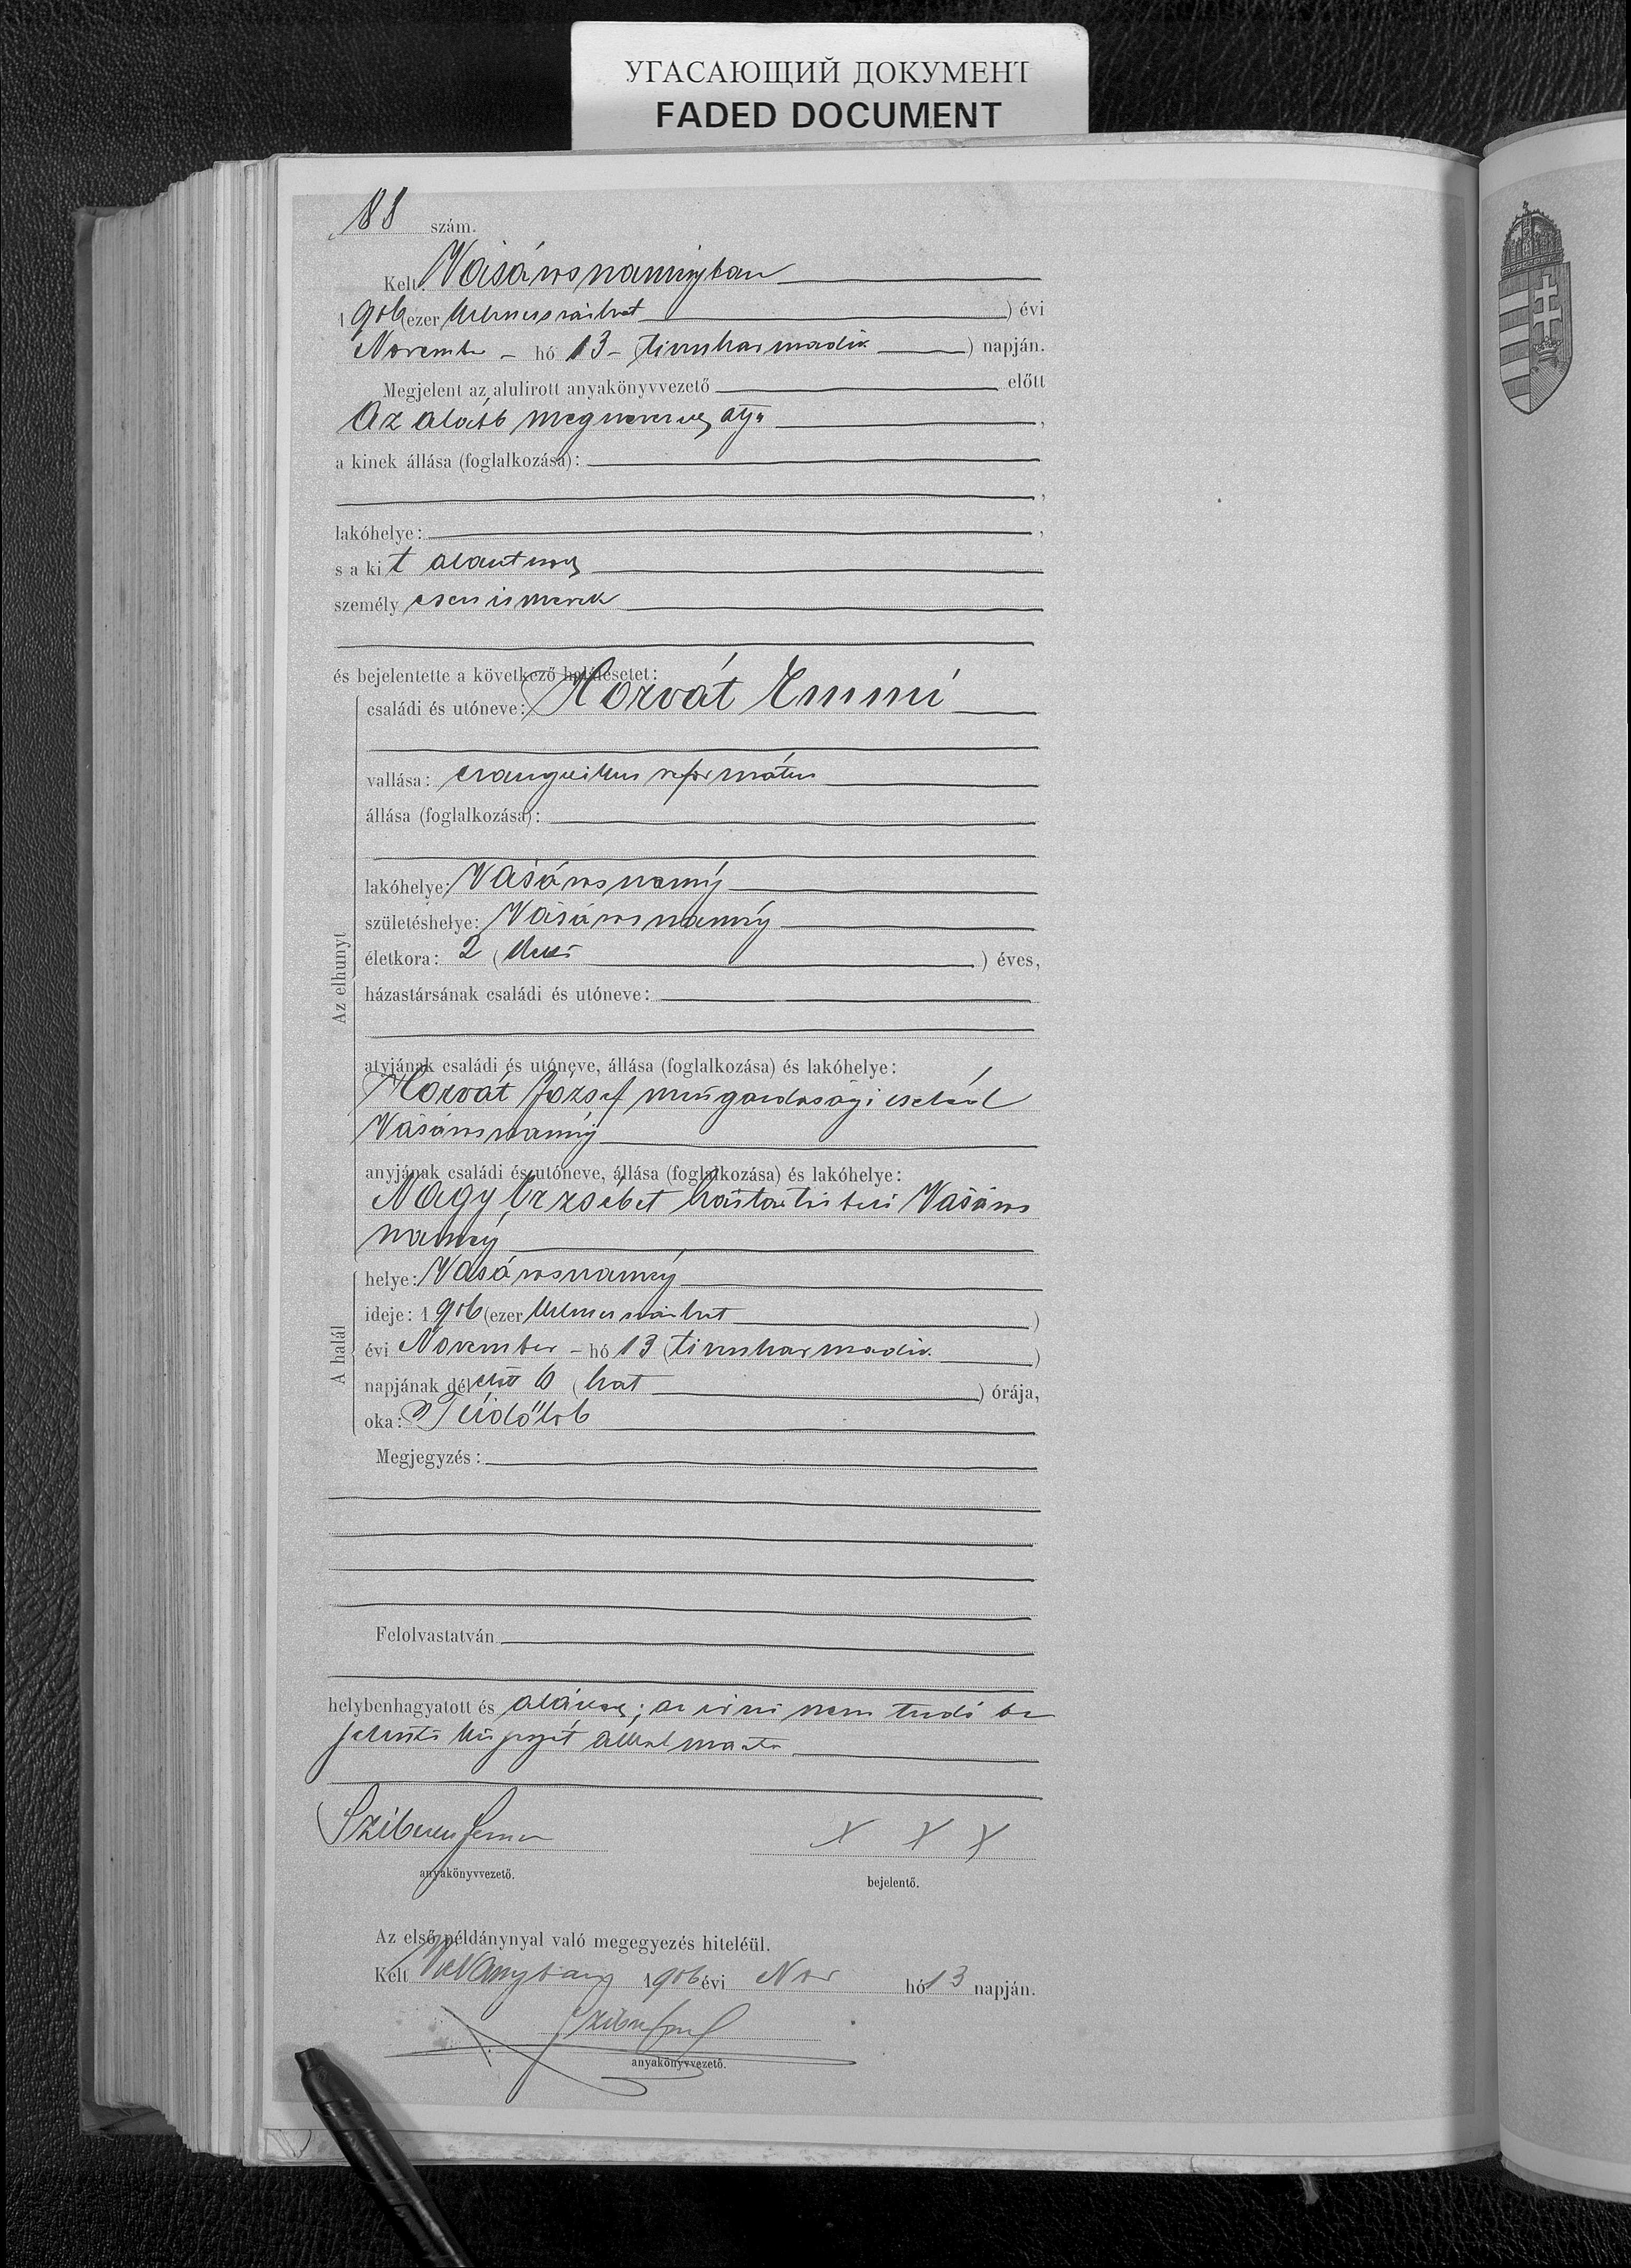 УГАСАЮЩИЙ ДОКУМЕНТ
FADED DOCUMENT
88 szám.
Kelt: Vásárosnaményban
1906 (ezer ) évi
November - hó 13 - (tizenharmadik ) napján.
Megjelent az alulirott anyakönyvvezető előtt
Az alább megnevezett atya ,
a kinek állása (foglalkozása):
,
lakóhelye: ,
s a kit
személy esen ismerek
és bejelentette a következő halálesetet:
Az elhunyt
családi és utóneve: Horvát Emmi
vallása: evangelikus református
állása (foglalkozása):
lakóhelye: Vásárosnamény
születéshelye: Vásárosnamény
életkora: 2 (kettő ) éves,
házastársának családi és utóneve:
atyjának családi és utóneve, állása (foglalkozása) és lakóhelye:
Horvát József mezőgazdasági cseléd
Vásárosnamény
anyjának családi és utóneve, állása (foglalkozása) és lakóhelye:
Nagy Erzsébet háztartásbeli Vásáros
namény
A halál
helye: Vásárosnamény
ideje: 1906 (ezer )
évi November - hó 13 (tizenharmadik )
napjának délelőtt 6 (hat ) órája,
oka: Tüdőlob
Megjegyzés:
Felolvastatván
helybenhagyatott és ; az irni nem tudó be
jelentő kézjegyét alkalmazta
anyakönyvvezető.
X X X
bejelentő.
Az első példánynyal való megegyezés hiteléül.
Kelt 1906 évi Nov hó 13 napján.
anyakönyvvezető.